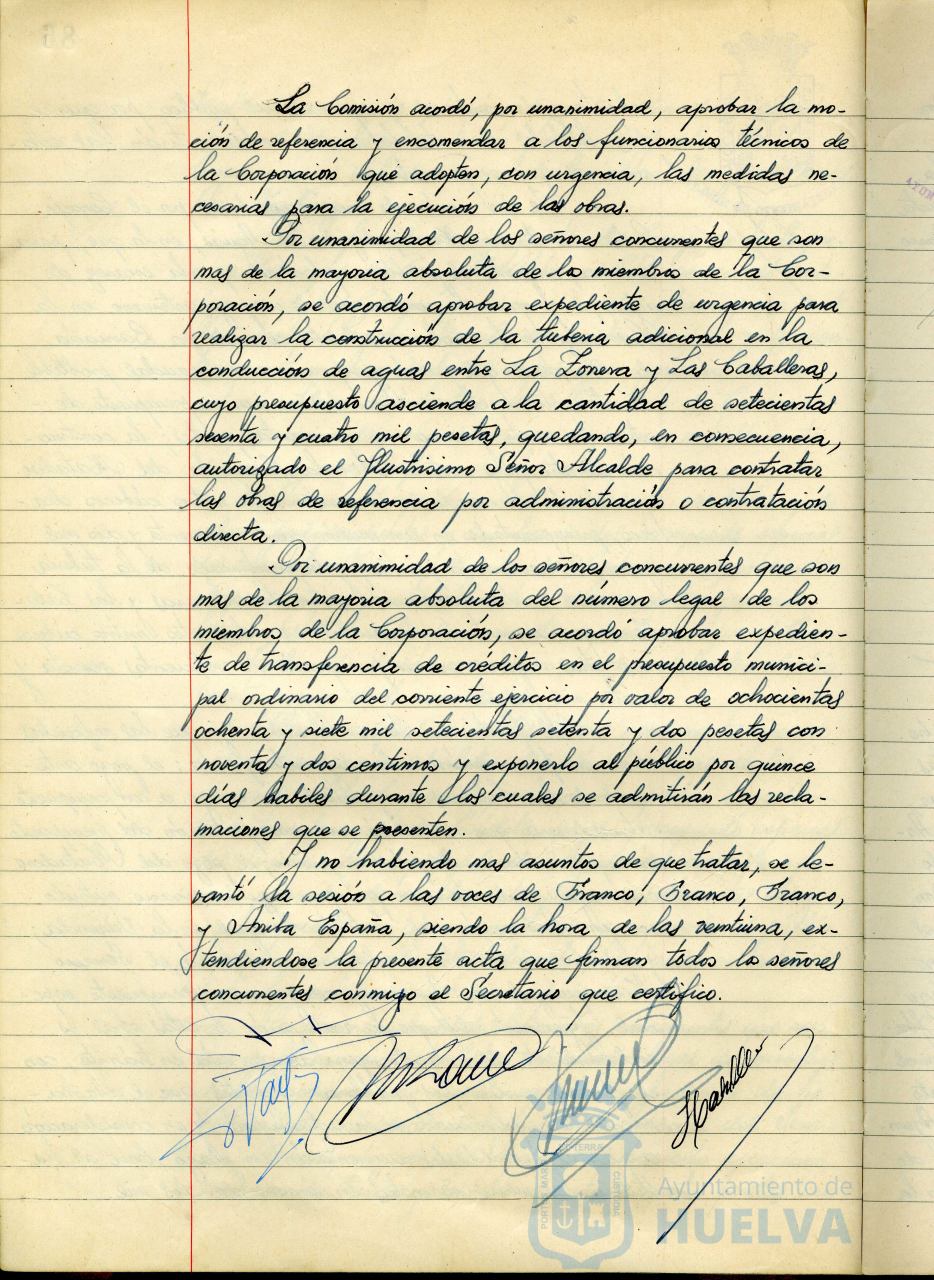 La Comisión acordó, por unanimidad, aprobar la mo-
ción de referencia y encomendar a los funcionarios técnicos de
la Corporación que adopten, con urgencia, las medidas ne-
cesarias para la ejecución de las obras.
Por unanimidad de los señores concurrentes que son
mas de la mayoria absoluta de los miembros de la Cor-
poración, se acordó aprobar expediente de urgencia para
realizar la construcción de la tuberia adicional en la
conducción de aguas entre La Zorrera y Las Caballeras,
cuyo presupuesto asciende a la cantidad de setecientas
sesenta y cuatro mil pesetas, quedando, en consecuencia,
autorizado el Ilustrisimo Señor Alcalde para contratar
las obras de referencia por administración o contratación
directa.
Por unanimidad de los señores concurrentes que son
mas de la mayoria absoluta del número legal de los
miembros de la Corporación, se acordó aprobar expedien-
te de transferencia de créditos en el presupuesto munici-
pal ordinario del corriente ejercicio por valor de ochocientas
ochenta y siete mil setecientas setenta y dos pesetas con
noventa y dos centimos y exponerlo al público por quince
días habiles durante los cuales se admitirán las recla-
maciones que se presenten.
Y no habiendo mas asuntos de que tratar, se le-
vantó la sesión a las voces de Franco, Franco, Franco,
y Arriba España, siendo la hora de las veintiuna, ex-
tendiendose la presente acta que firman todos los señores
concurrentes conmigo el Secretario que certifico.
Ayuntamiento de
HUELVA